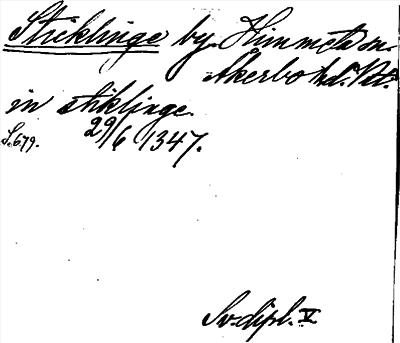 Sticklinge by. Himmeta sn.
Åkerbo hd. Vstm.
in stiklinge.
S. 679. 29/6 1347.
Sv. dipl. V